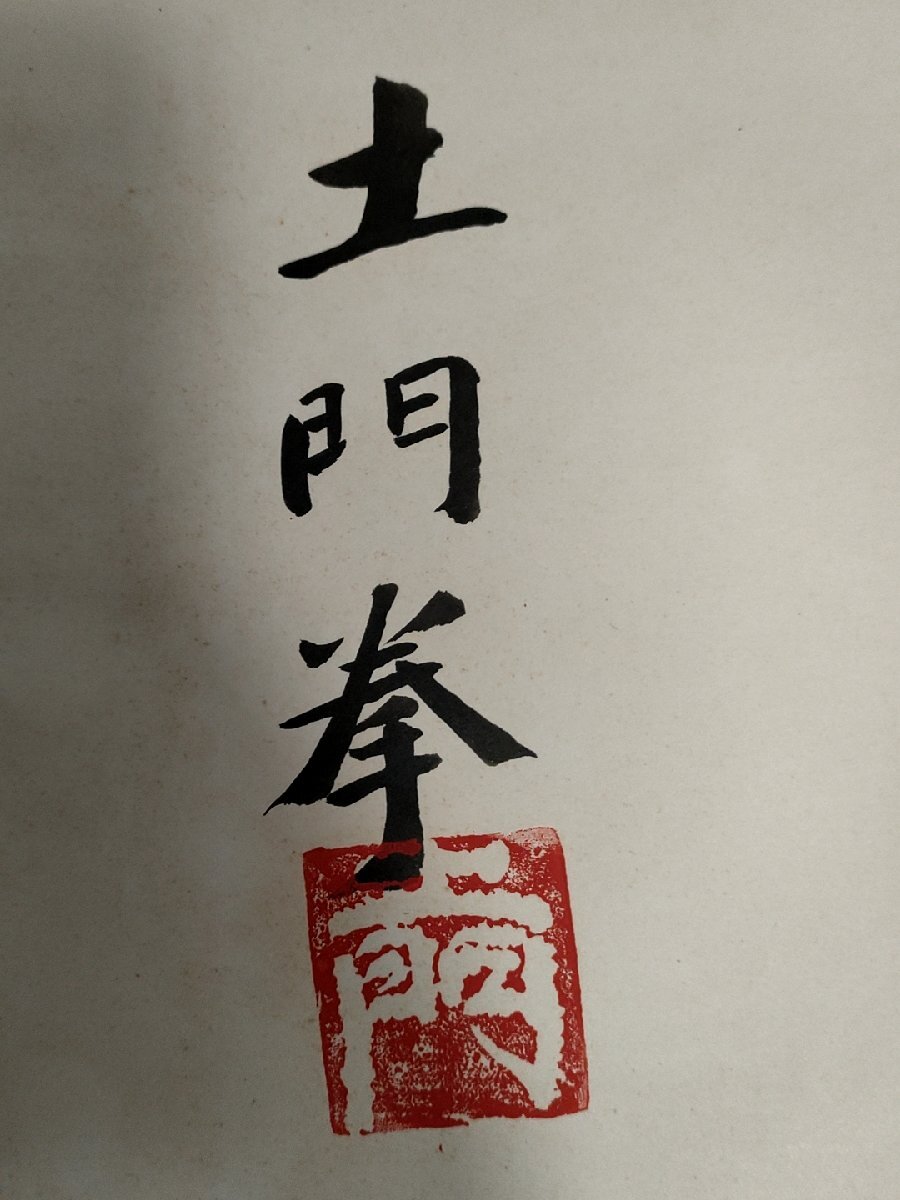 土門拳
土門